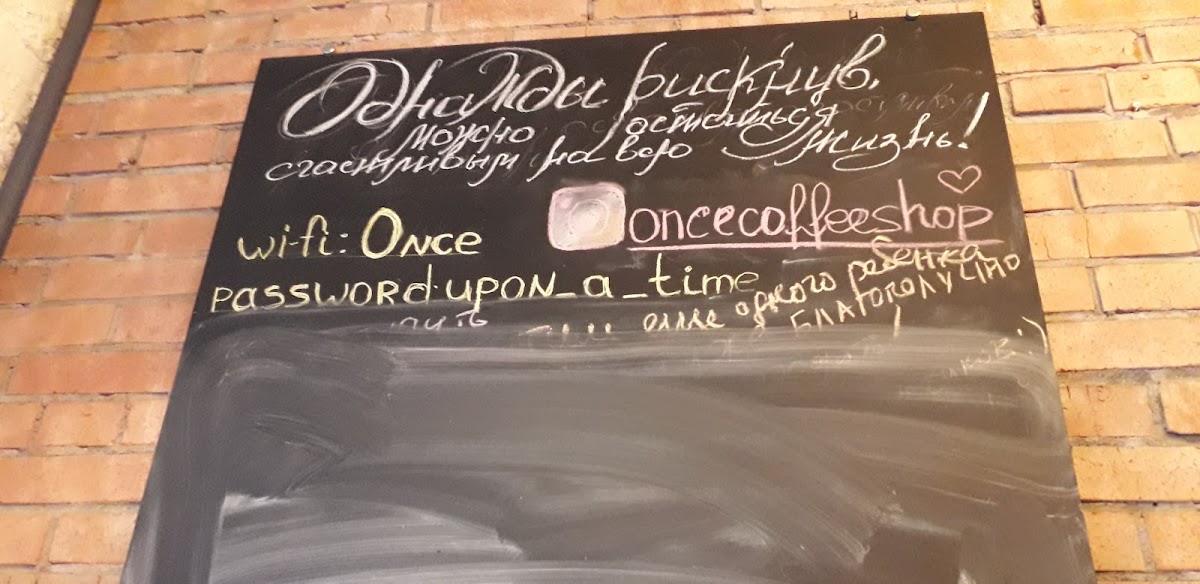 Однажды рискнув,
можно остаться
счастливым на всю жизнь!
oncecoffeeshop
wi-fi: Once
password: upon_a_time
одного ребенка
Благополучно